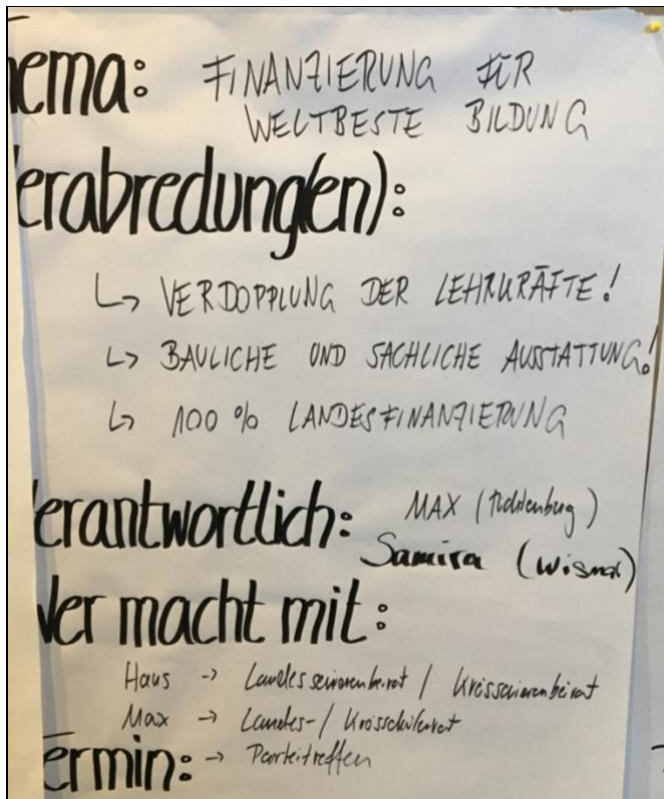 hema: FINANZIERUNG FÜR
WELTBESTE BILDUNG
erabredung(en):
↳ VERDOPPLUNG DER LEHRKRÄFTE!
↳ BAULICHE UND SACHLICHE AUSSTATTUNG!
↳ 100 % LANDESFINANZIERUNG
erantwortlich: MAX (
Samira (Wismar)
Wer macht mit:
Haus → Landesseniorenbeirat / Kreisseniorenbeirat
Max → Landes-/ Kreisschülerrat
ermin: → Parteitreffen